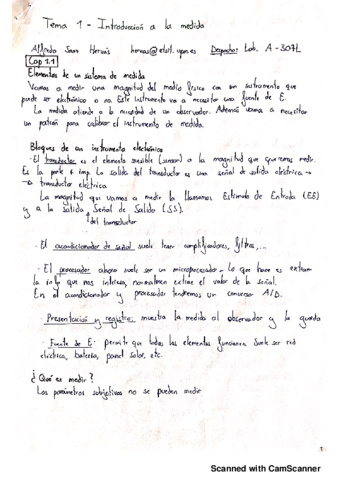 Tema 1 - Introducción a la medida
Alfredo Sanz Hervás hervas@etsit.upm.es Despacho: Lab. A-307L
Cap 1.1
Elementos de un sistema de medida
Vamos a medir una magnitud del medio físico con un instrumento que
puede ser electrónico o no. Este instrumento va a necesitar una fuente de E.
La medida atiende a la necesidad de un observador. Además vamos a necesitar
un patrón para calibrar el instrumento de medida.
Bloques de un instrumento electrónico
· El transductor es el elemento sensible (sensor) a la magnitud que queremos medir.
Es la parte + imp. La salida del transductor es una señal de salida eléctrica →
→ transductor eléctrica
La magnitud que vamos a medir la llamamos Estímulo de Entrada (EE)
y a la salida, Señal de Salida (SS).
del transductor
· El acondicionador de señal suele tener amplificadores, filtros,...
· El procesador ahora suele ser un microprocesador. Lo que hace es extraer
la info que nos interesa, normalmente extrae el valor de la señal.
En el acondicionador y procesador tendremos un conversor A/D.
· Presentación y registro: muestra la medida al observador y la guarda
· Fuente de E: permite que todos los elementos funcionen. Suele ser red
eléctrica, batería, panel solar, etc.
¿Qué es medir?
Los parámetros subjetivos no se pueden medir
1
Scanned with CamScanner